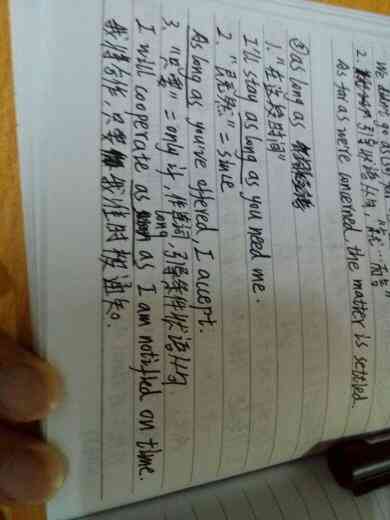 2. 引导状语从句,"就…而言"
As far as we're concerned, the matter is settled.
③as long as
1. "在这段时间"
I'll stay as long as you need me.
2. "既然" = since
As long as you've offered, I accept.
3. "只要" = only if, 作连词, 引导条件状语从句.
I will cooperate as long as I am notified on time.
我准合作,只要我准时被通知。